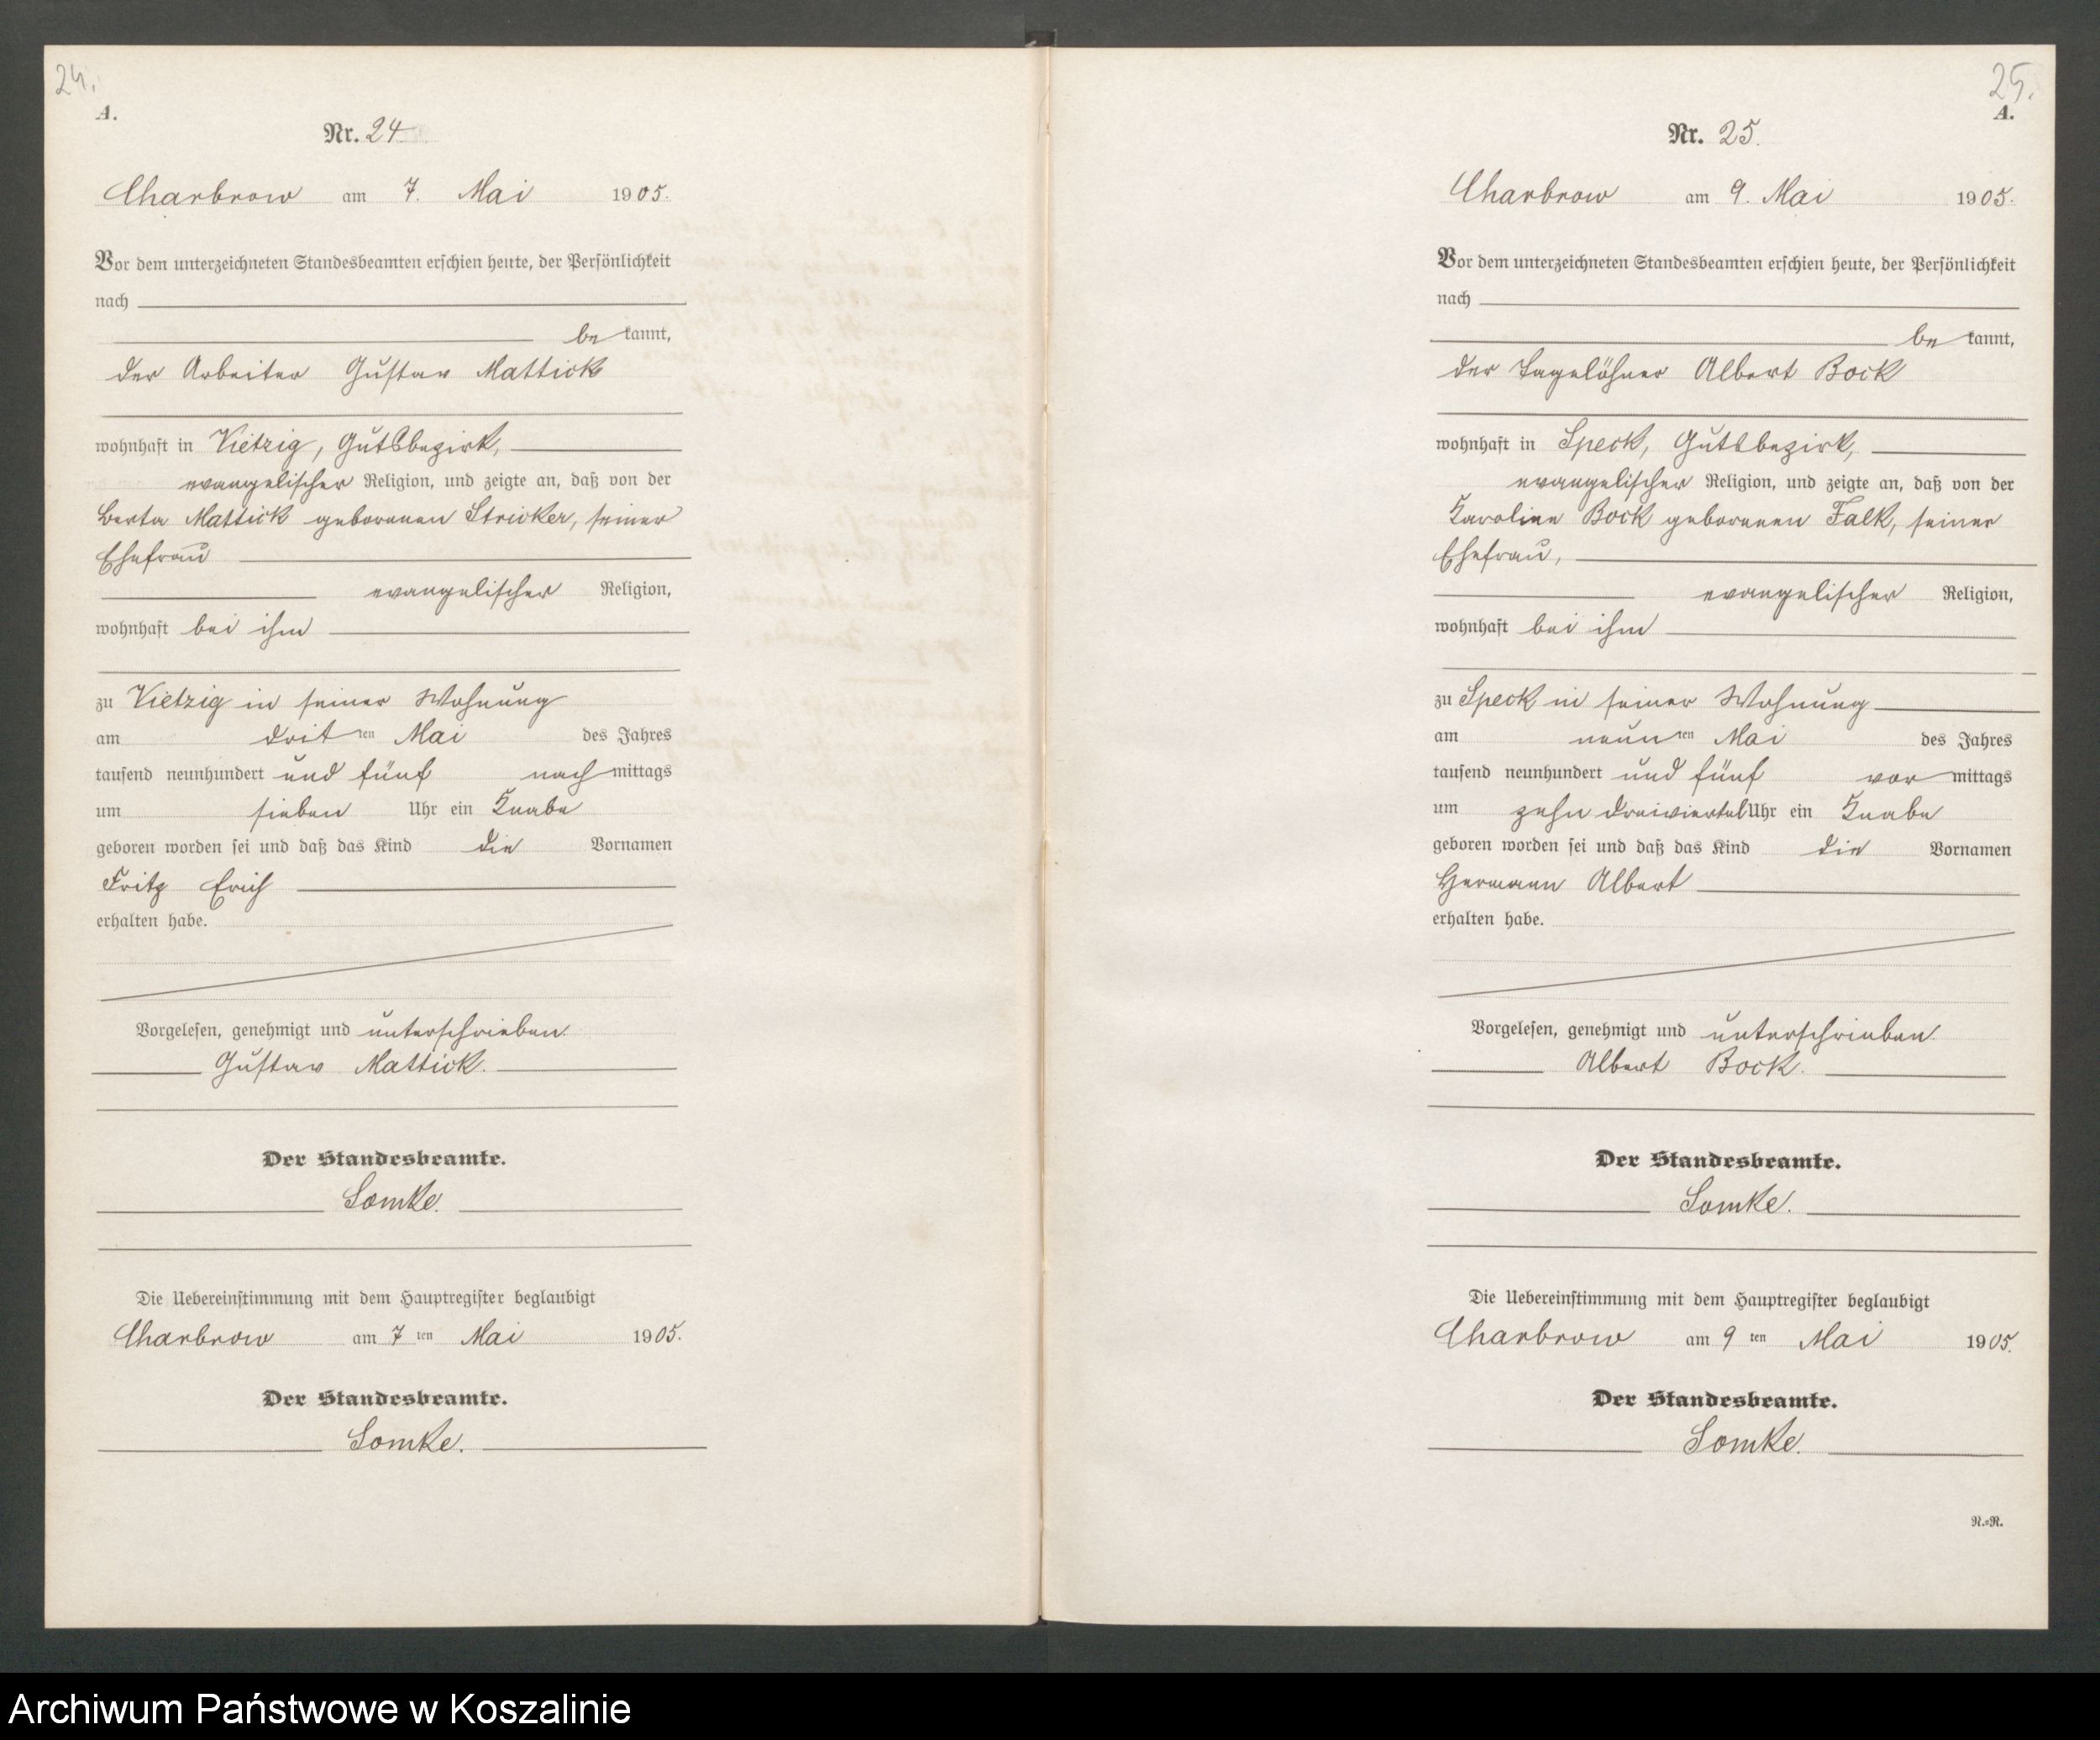 24.
A.
Nr. 24
Charbrow am 7. Mai 1905.
Vor dem unterzeichneten Standesbeamten erschien heute, der Persönlichkeit
nach
be kannt,
der Arbeiter Gustav Mattick
wohnhaft in Vietzig, Gutsbezirk,
evangelischer Religion, und zeigte an, daß von der
Berta Mattick geborenen Stricker, seiner
Ehefrau
evangelischer Religion,
wohnhaft bei ihm
zu Vietzig in seiner Wohnung
am dritten Mai des Jahres
tausend neunhundert und fünf nachmittags
um sieben Uhr ein Knabe
geboren worden sei und daß das Kind die Vornamen
Fritz Erich
erhalten habe.
Vorgelesen, genehmigt und unterschrieben.
Gustav Mattick.
Der Standesbeamte.
Lomke.
Die Uebereinstimmung mit dem Hauptregister beglaubigt
Charbrow am 7 ten Mai 1905.
Der Standesbeamte.
Lomke.
25.
A.
Nr. 25.
Charbrow am 9. Mai 1905.
Vor dem unterzeichneten Standesbeamten erschien heute, der Persönlichkeit
nach
be kannt,
der Tagelöhner Albert Bock
wohnhaft in Speck, Gutsbezirk,
evangelischer Religion, und zeigte an, daß von der
Karoline Bock geborenen Falk, seiner
Ehefrau,
evangelischer Religion,
wohnhaft bei ihm
zu Speck in seiner Wohnung
am neunten Mai des Jahres
tausend neunhundert und fünf vormittags
um zehn dreiviertel Uhr ein Knabe
geboren worden sei und daß das Kind die Vornamen
Hermann Albert
erhalten habe.
Vorgelesen, genehmigt und unterschrieben.
Albert Bock.
Der Standesbeamte.
Lomke.
Die Uebereinstimmung mit dem Hauptregister beglaubigt
Charbrow am 9 ten Mai 1905.
Der Standesbeamte.
Lomke.
R.=R.
Archiwum Państwowe w Koszalinie